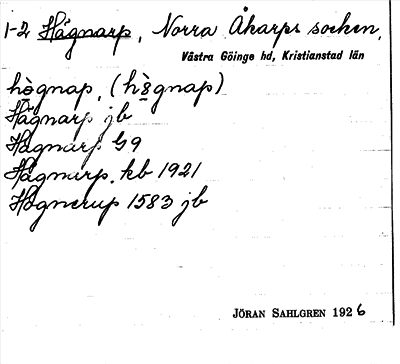 1-2 Hågnarp, Norra Åkarps socken,
Västra Göinge hd, Kristianstad län
hògnap, (hògnap)
Hågnarp jb
Hågnarp G9
Hågnarp. kb 1921
Hognerup 1583 jb
JÖRAN SAHLGREN 1926